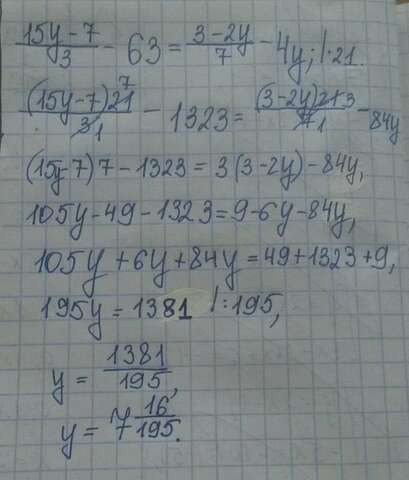 (15y-7)/3 - 63 = (3-2y)/7 - 4y; /·21.
((15y-7)21 7)/(3 1) - 1323 = ((3-2y)21 3)/(7 1) - 84y
(15y-7)7 - 1323 = 3(3-2y) - 84y,
105y - 49 - 1323 = 9 - 6y - 84y,
105y + 6y + 84y = 49 + 1323 + 9,
195y = 1381 /:195,
y = 1381/195,
y = 7 16/195.